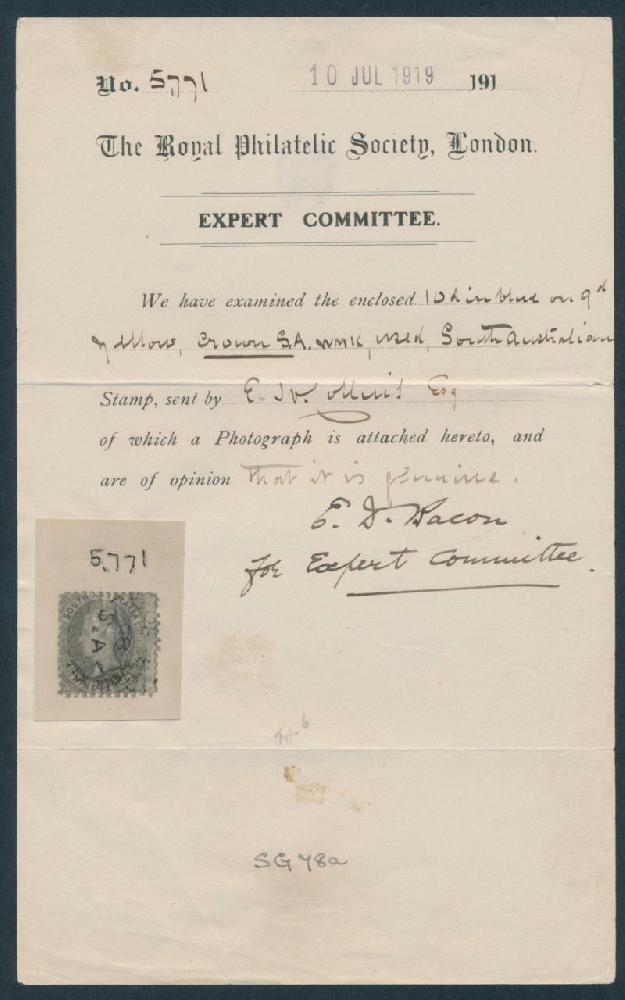 No. 5771 10 JUL 1919 191
The Royal Philatelic Society, London.
EXPERT COMMITTEE.
We have examined the enclosed 10d in blue on 9d
yellow, Crown S.A. wmk, used, South Australian
Stamp, sent by E. W. Esq
of which a Photograph is attached hereto, and
are of opinion that it is genuine.
E. D. Bacon
for Expert Committee.
5771
SOUTH
S.A.
SG 78a